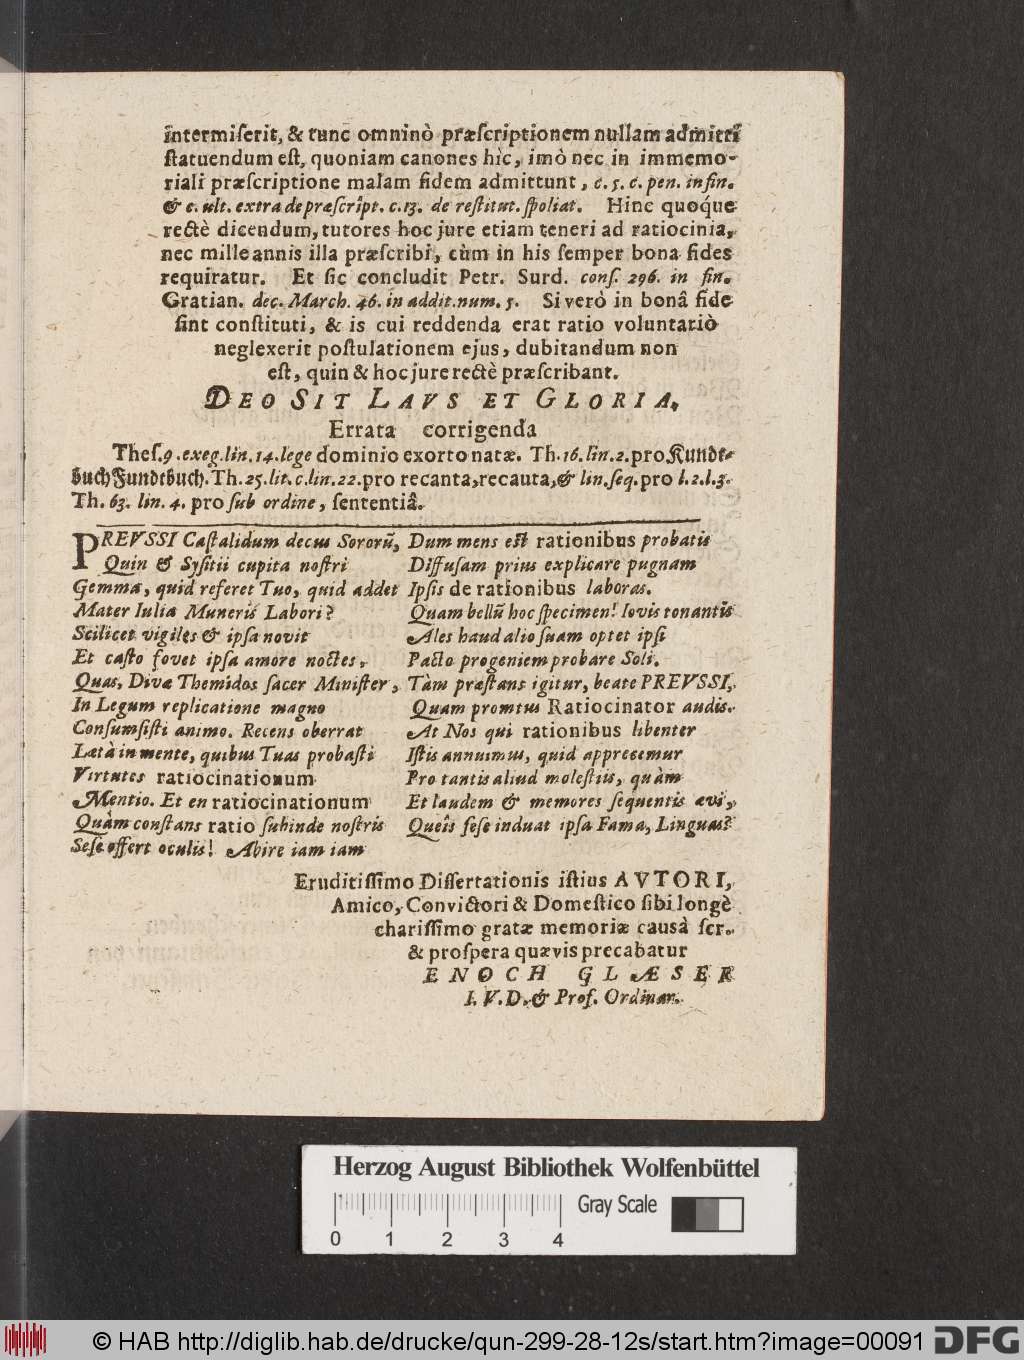 intermiſerit, & tunc omninò præſcriptionem nullam admitti
ſtatuendum eſt, quoniam canones hîc, imò nec in immemo-
riali præſcriptione malam fidem admittunt, c. 5. c. pen. in fin.
& c. ult. extra de præſcript. c. 13. de reſtitut. ſpoliat. Hinc quoq́ue
rectè dicendum, tutores hoc jure etiam teneri ad ratiocinia,
nec mille annis illa præſcribi, cùm in his ſemper bona fides
requiratur. Et ſic concludit Petr. Surd. conſ. 296. in fin.
Gratian. dec. March. 46. in addit. num. 5. Si verò in bonâ fide
ſint conſtituti, & is cui reddenda erat ratio voluntariò
neglexerit poſtulationem ejus, dubitandum non
eſt, quin & hoc jure rectè præſcribant.
DEO SIT LAVS ET GLORIA.
Errata corrigenda
Theſ. 9. exeg. lin. 14. lege dominio exorto natæ. Th. 16. lin. 2. pro Kundt-
buch Fundtbuch. Th. 25. lit. c. lin. 22. pro recanta, recauta, & lin. ſeq. pro l. 2. l. 3.
Th. 63. lin. 4. pro ſub ordine, ſententiâ.
PREVSSI Caſtalidum decus Sororũ,
Quin & Syſitii cupita noſtri
Gemma, quid referet Tuo, quid addet
Mater Iulia Muneris Labori?
Scilicet vigiles & ipſa novit
Et caſto fovet ipſa amore noctes,
Quas, Divæ Themidos ſacer Miniſter,
In Legum replicatione magno
Conſumſiſti animo. Recens oberrat
Lætà in mente, quibus Tuas probaſti
Virtutes ratiocinationum
Mentio. Et en ratiocinationum
Quàm conſtans ratio ſubinde noſtris
Seſe offert oculis! Abire iam iam
Dum mens eſt rationibus probatis
Diffuſam prius explicare pugnam
Ipſis de rationibus laboras.
Quam bellũ hoc ſpecimen! Iovis tonantis
Ales haud alio ſuam optet ipſi
Pacto progeniem probare Soli.
Tàm præſtans igitur, beate PREVSSI,
Quam promtus Ratiocinator audis.
At Nos qui rationibus libenter
Iſtis annuimus, quid apprecemur
Pro tantis aliud moleſtiis, quàm
Et laudem & memores ſequentis ævi,
Queîs ſeſe induat ipſa Fama, Linguas?
Eruditiſſimo Diſſertationis iſtius AVTORI,
Amico, Convictori & Domeſtico ſibi longè
chariſſimo gratæ memoriæ causâ ſcr.
& proſpera quævis precabatur
ENOCH GLÆSER
I. V. D. & Prof. Ordinar.
Herzog August Bibliothek Wolfenbüttel
Gray Scale
0 1 2 3 4
© HAB http://diglib.hab.de/drucke/qun-299-28-12s/start.htm?image=00091
DFG